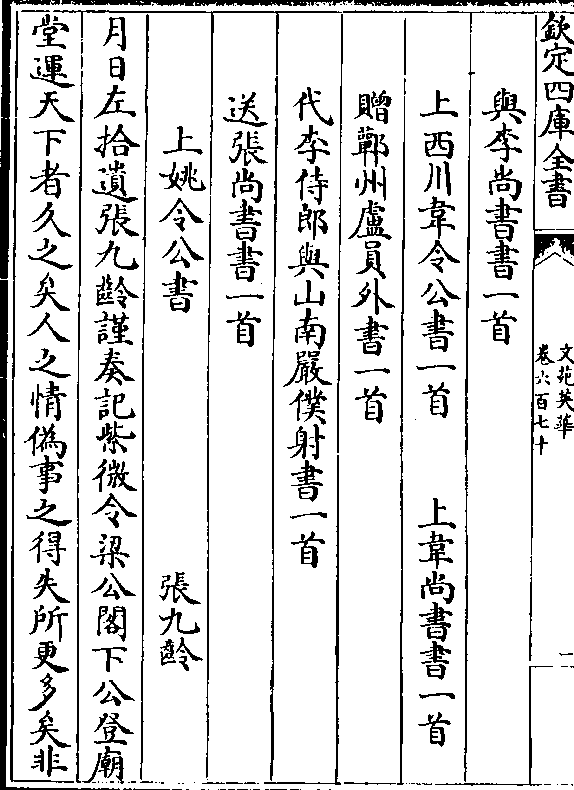 欽定四庫全書
文苑英華
卷六百七十
一
與李尚書書一首
上西川韋令公書一首　上韋尚書書一首
贈鄿州盧員外書一首
代李侍郎與山南嚴僕射書一首
送張尚書書一首
上姚令公書　張九齡
月日左拾遺張九齡謹奏記紫微令梁公閣下公登廟
堂運天下者久之矣人之情偽事之得失所更多矣非